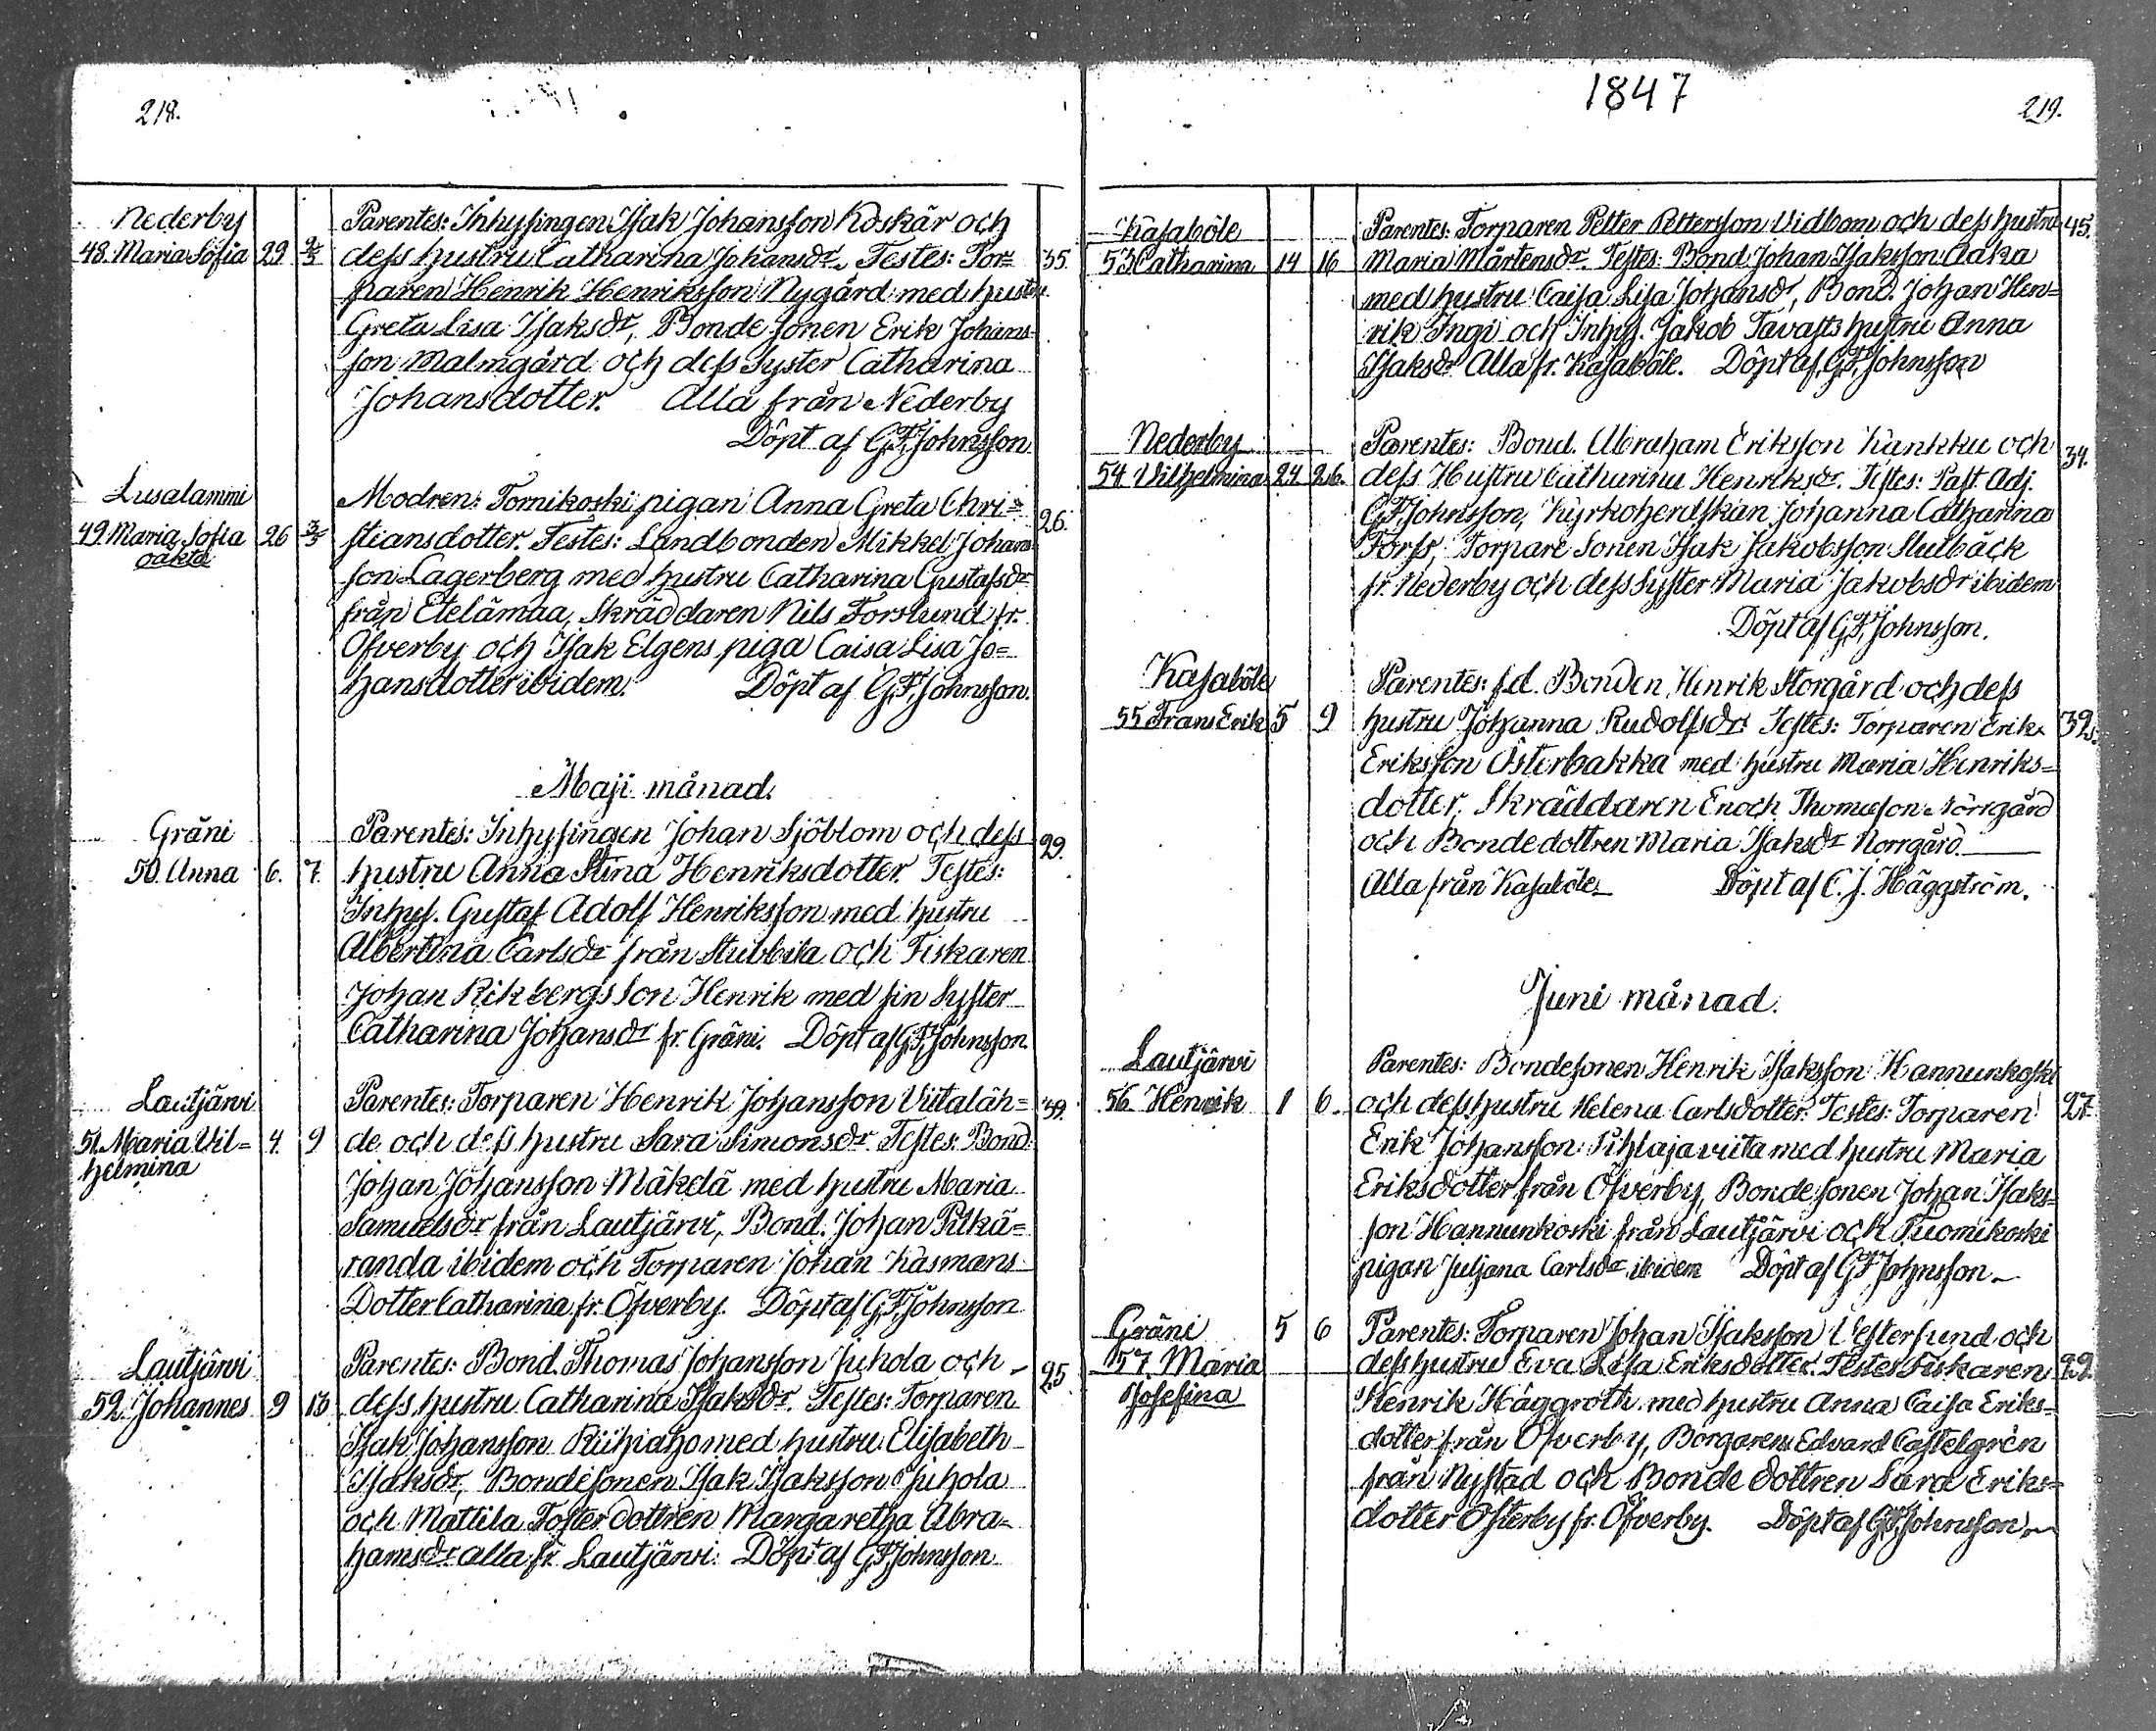 218.
Nederby
48. Maria Sofia 29 2/5
Parentes: Inhysingen Isak Johansson Koskär och
dess hustru Catharina Johansdr. Testes: Tor= 35.
paren Henrik Henriksson Nygård med hustru
Greta Lisa Isaksdr, Bonde sonen Erik Johans-
son Malmgård och dess Syster Catharina
Johansdotter. Alla från Nederby
Döpt af G.F. Johnsson
Lusalammi
49. Maria Sofia 26 3/5
oäkta
Modren: Tornikoski pigan Anna Greta Chri= 26.
stiansdotter. Testes: Landbonden Mikkel Johans
son Lagerberg med hustru Catharina Gustafsdr
från Etelämaa, Skräddaren Nils Forslund fr.
Öfverby och Isak Elgens piga Caisa Lisa Jo=
hansdotter ibidem. Döpt af G.F. Johnsson.
Maji månad.
Gräni
50. Anna 6. 7.
Parentes: Inhysingen Johan Sjöblom och dess 29.
hustru Anna Stina Henriksdotter. Testes:
Inhys. Gustaf Adolf Henriksson med hustru
Albertina Carlsdr från Stubbila och Fiskaren
Johan Rikbergs Son Henrik med sin Syster
Catharina Johansdr fr. Gräni. Döpt af G.F. Johnsson.
Lautjärvi
51. Maria Vil= 4. 9
helmina
Parentes: Torparen Henrik Johansson Viitaläh= 39.
de och dess hustru Sara Simonsdr. Testes: Bond.
Johan Johansson Mäkelä med hustru Maria
Samuelsdr från Lautjärvi, Bond. Johan Pitkä=
randa ibidem och Torparen Johan Kasmans
Dotter Catharina fr. Öfverby. Döpt af G.F. Johnsson
Lautjärvi
52. Johannes 9 13
Parentes: Bond. Thomas Johansson Juhola och 25.
dess hustru Catharina Isaksdr. Testes: Torparen
Isak Johansson Riihiaho med hustru Elisabeth
Isaksdr, Bondesonen Isak Isaksson Juhola
och Mattila Foster dottren Margaretha Abra-
hamsdr alla fr. Lautjärvi. Döpt af G.F. Johnsson
1847
219.
Kasaböle
53 Catharina 14 16
Parentes: Torparen Petter Pettersson Vidbom och dess hustru 45.
Maria Mårtensdr. Testes: Bond. Johan Isaksson Aaka
med hustru Caisa Lisa Johansdr, Bond. Johan Hen=
rik Ingi och Inhys. Jakob Tavasts hustru Anna
Isaksdr Alla fr. Kasaböle. Döpt af G.F. Johnsson
Nederby
54 Vilhelmina 24 26.
Parentes: Bond. Abraham Eriksson Kankku och 34.
dess Hustru Catharina Henriksdr. Testes: Past. Adj.
G.F. Johnsson, Kyrkoherdskan Johanna Catharina
Forss, Torpare Sonen Isak Jakobsson Stulbäck
fr. Nederby och dess Syster Maria Jakobsdr ibidem
Döpt af G.F. Johnsson.
Kasaböle
55 Frans Erik 5 9
Parentes: f.d. Bonden Henrik Storgård och dess
hustru Johanna Rudolfsdr. Testes: Torparen Erik 39.
Eriksson Österbakka med hustru Maria Henriks=
dotter, Skräddaren Enoch Thomasson Norrgård
och Bondedottren Maria Isaksdr Norrgård
Alla från Kasaböle. Döpt af C. J. Häggström.
Juni månad.
Lautjärvi
56. Henrik 1 6.
Parentes: Bondesonen Henrik Isaksson Hannunkoski
och dess hustru Helena Carlsdotter. Testes: Torparen 27.
Erik Johansson Pihlajaviita med hustru Maria
Eriksdotter från Öfverby, Bonde sonen Johan Isaks=
son Hannunkoski från Lautjärvi och Tuomikoski
pigan Juljana Carlsdr ibidem Döpt af G.F. Johnsson
Gräni 5 6
57. Maria
Josefina
Parentes: Torparen Johan Isaksson Vestersund och
dess hustru Eva Lisa Eriksdotter. Testes: Fiskaren 29.
Henrik Häggroth med hustru Anna Caisa Eriks=
dotter från Öfverby, Borgaren Edvard Castelgrèn
från Nystad och Bonde dottren Sara Eriks=
dotter Österby fr. Öfverby. Döpt af G.F. Johnsson